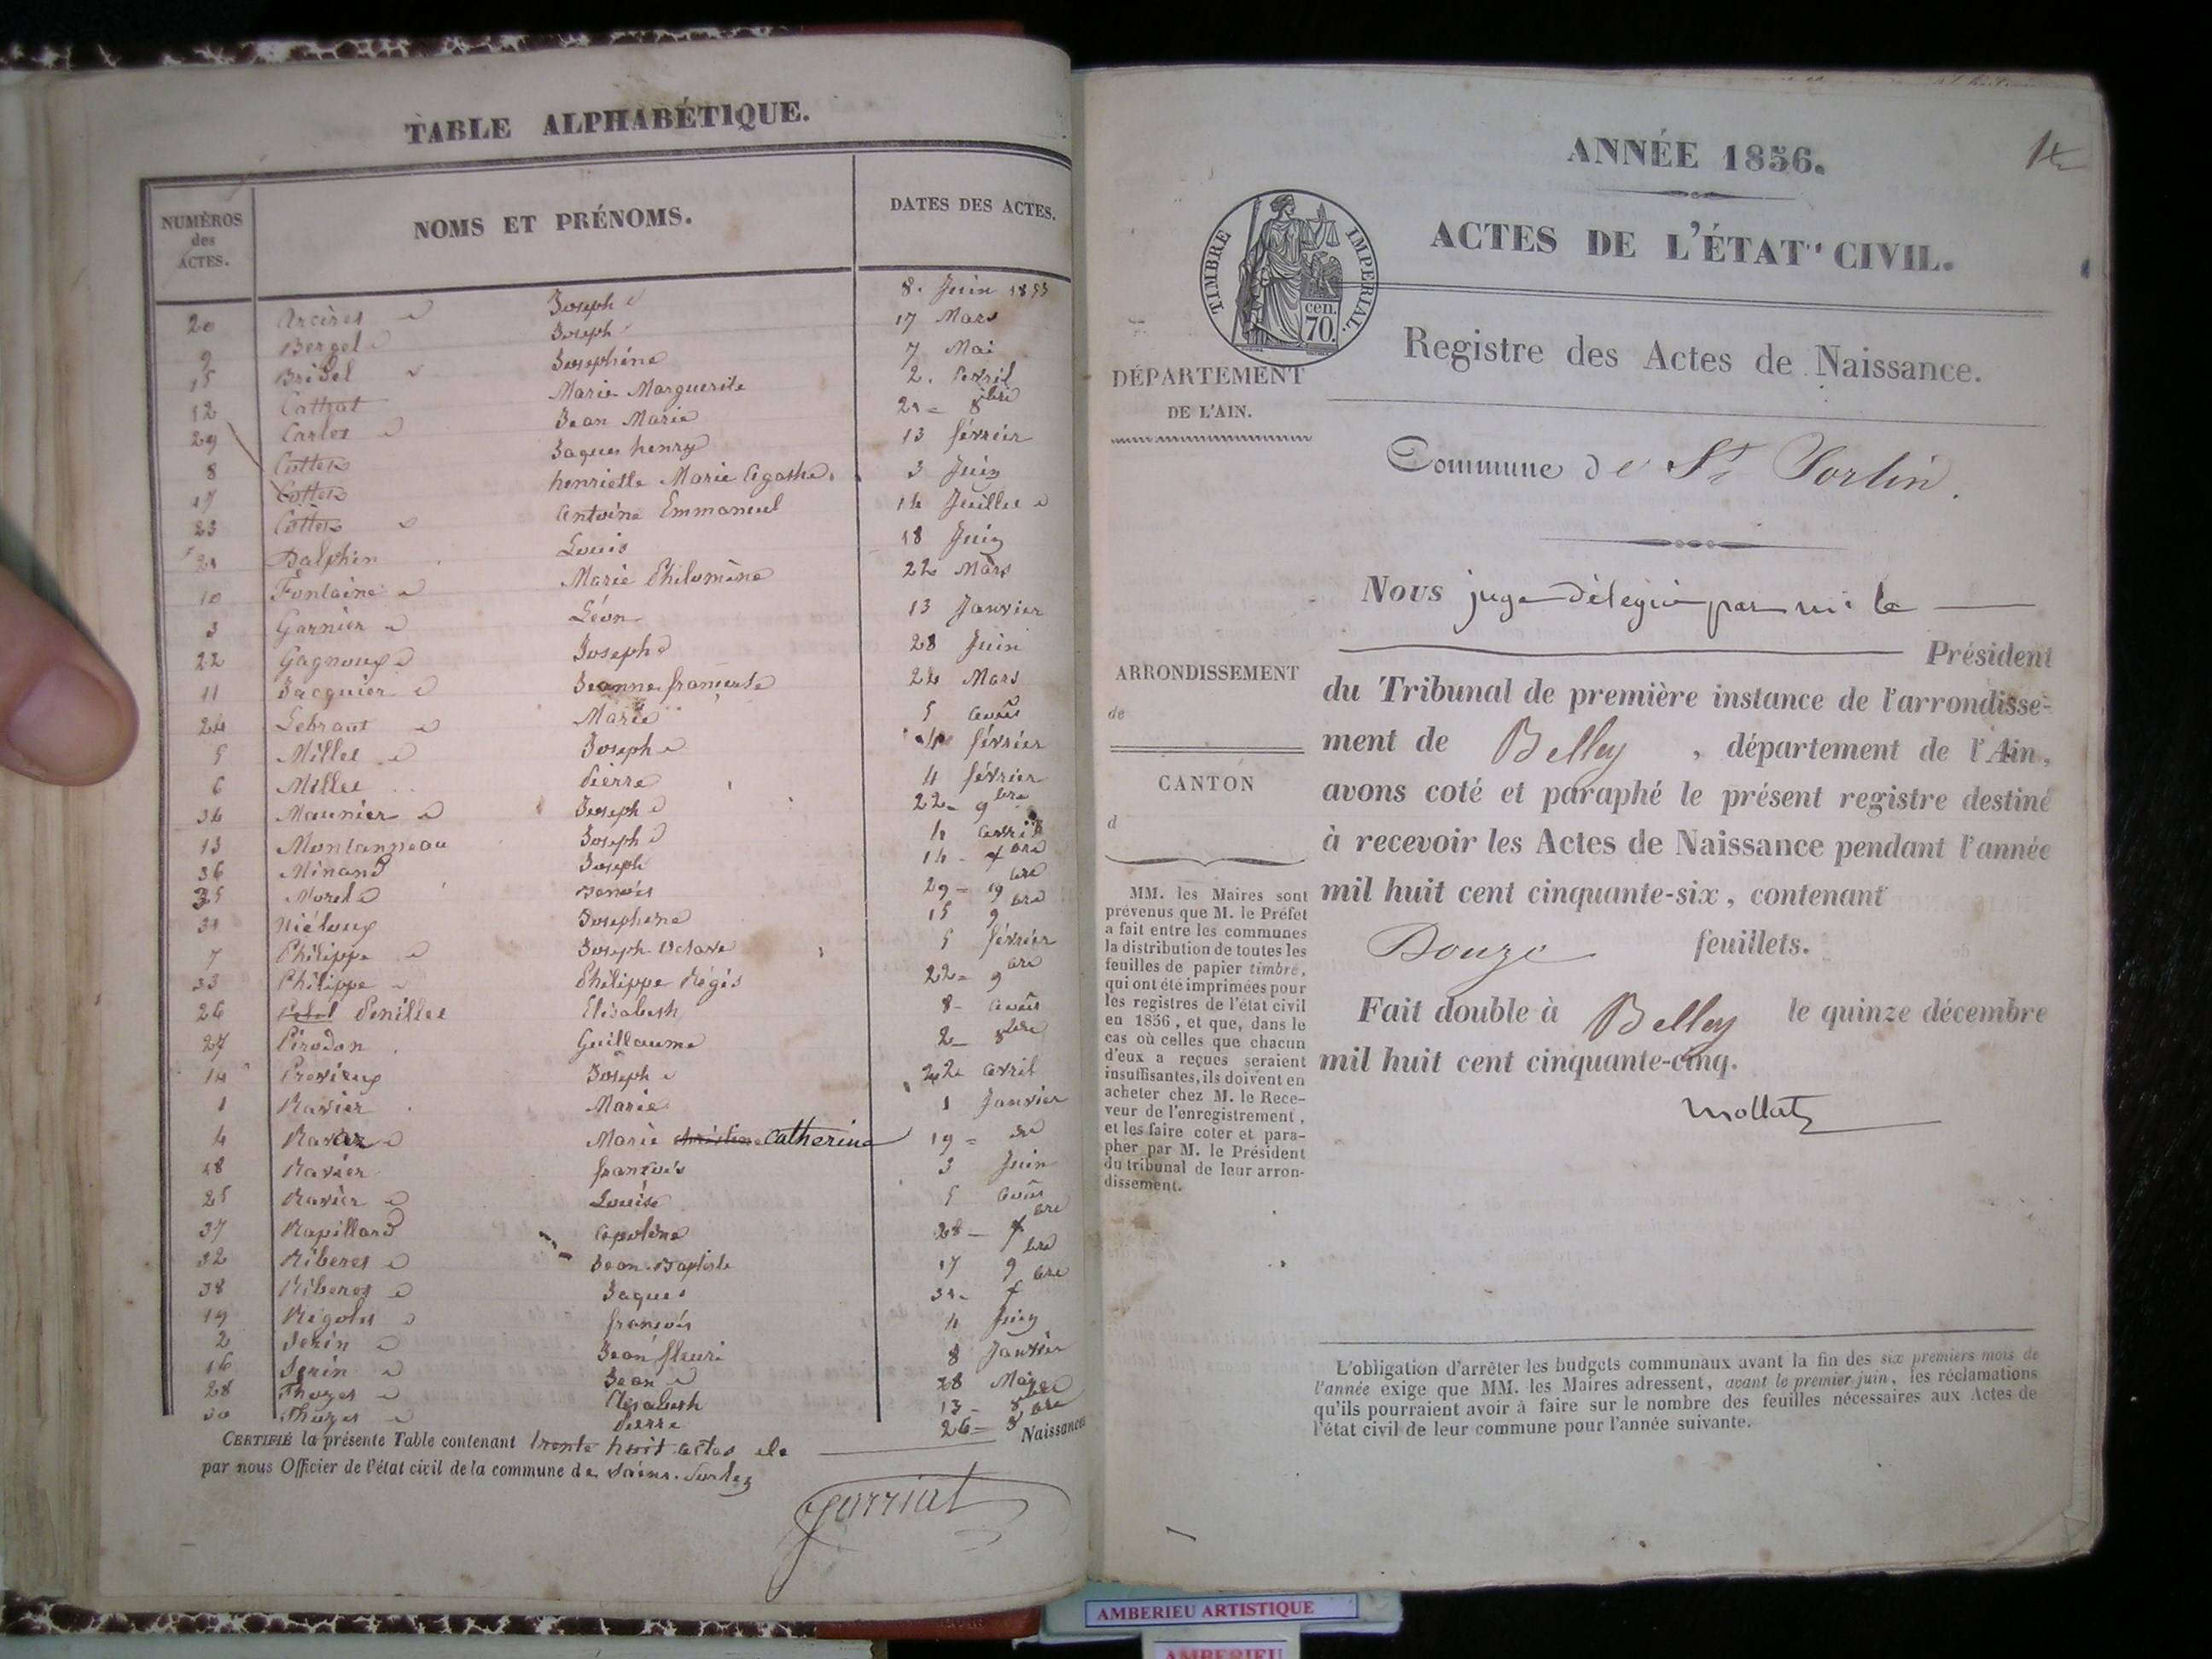 TABLE ALPHABÉTIQUE.
NUMÉROS des ACTES. NOMS ET PRÉNOMS. DATES DES ACTES.
20 Joseph 8. Juin
9 Bergel Joseph 17 Mars
15 Bridel Josephine 7 Mai
12 Marie Marguerite 2. Avril
29 Carlet Jean Marie 21 = 8bre
8 Cottet Jaques henry 13 février
17 Cottet henriette Marie Agathe 3 Juin
23 Cottet antoine Emmanuel 14 Juillet
21 Dalphin Louis 18 Juin
10 Fontaine Marie Philomène 22 Mars
3 Garnier Léon 13 Janvier
22 Gagnoux Joseph 28 Juin
11 Jacquier Jeanne françoise 24 Mars
24 Lebraut Marie 5 août
5 Millet Joseph février
6 Millet Pierre 4 février
34 Maunier Joseph 22 = 9bre
13 Montanneau Joseph 4 avril
36 Minand Joseph 14 -
35 Morel Benoit 29 = 9bre
31 Niéloux Josephine 15 9bre
7 Philippe Joseph Octave 5 février
33 Philippe Philippe Régis 22 = 9bre
26 Penillet Elisabeth 8 - août
27 Pirodon Guillaume 2 - 8bre
14 Previeux Joseph 22 avril
1 Ravier Marie 1 Janvier
4 Marie Catherine 19 =
18 Ravier françois 3 Juin
25 Ravier Louise 5 août
37 Rapillard 28 -
32 Riberet Jean-Baptiste 17 9bre
38 Riberet Jaques 31 -
19 Rigolet françois 4 Juin
2 Serin Jean fleuri 8 Janvier
16 Serin Jean 28 Mai
28 Thozet Elisabeth 13 - 8bre
30 Thozet Pierre 26 = 8bre
CERTIFIÉ la présente Table contenant trente huit actes de Naissances
par nous Officier de l'état civil de la commune de Saint-Sorlin
Jarriat
ANNÉE 1856.
ACTES DE L'ÉTAT CIVIL.
TIMBRE IMPÉRIAL.
cen.
70.
Registre des Actes de Naissance.
DÉPARTEMENT
DE L'AIN.
Commune de St Sorlin.
Nous juge délégué par mr le
Président
ARRONDISSEMENT
de
du Tribunal de première instance de l'arrondisse-
ment de Belley, département de l'Ain,
CANTON
d
avons coté et paraphé le présent registre destiné
à recevoir les Actes de Naissance pendant l'année
mil huit cent cinquante-six, contenant
Douze feuillets.
Fait double à Belley le quinze décembre
mil huit cent cinquante-cinq.
Mollat
MM. les Maires sont
prévenus que M. le Préfet
a fait entre les communes
la distribution de toutes les
feuilles de papier timbré,
qui ont été imprimées pour
les registres de l'état civil
en 1856, et que, dans le
cas où celles que chacun
d'eux a reçues seraient
insuffisantes, ils doivent en
acheter chez M. le Rece-
veur de l'enregistrement,
et les faire coter et para-
pher par M. le Président
du tribunal de leur arron-
dissement.
L'obligation d'arrêter les budgets communaux avant la fin des six premiers mois de
l'année exige que MM. les Maires adressent, avant le premier juin, les réclamations
qu'ils pourraient avoir à faire sur le nombre des feuilles nécessaires aux Actes de
l'état civil de leur commune pour l'année suivante.
AMBERIEU ARTISTIQUE
AMBERIEU